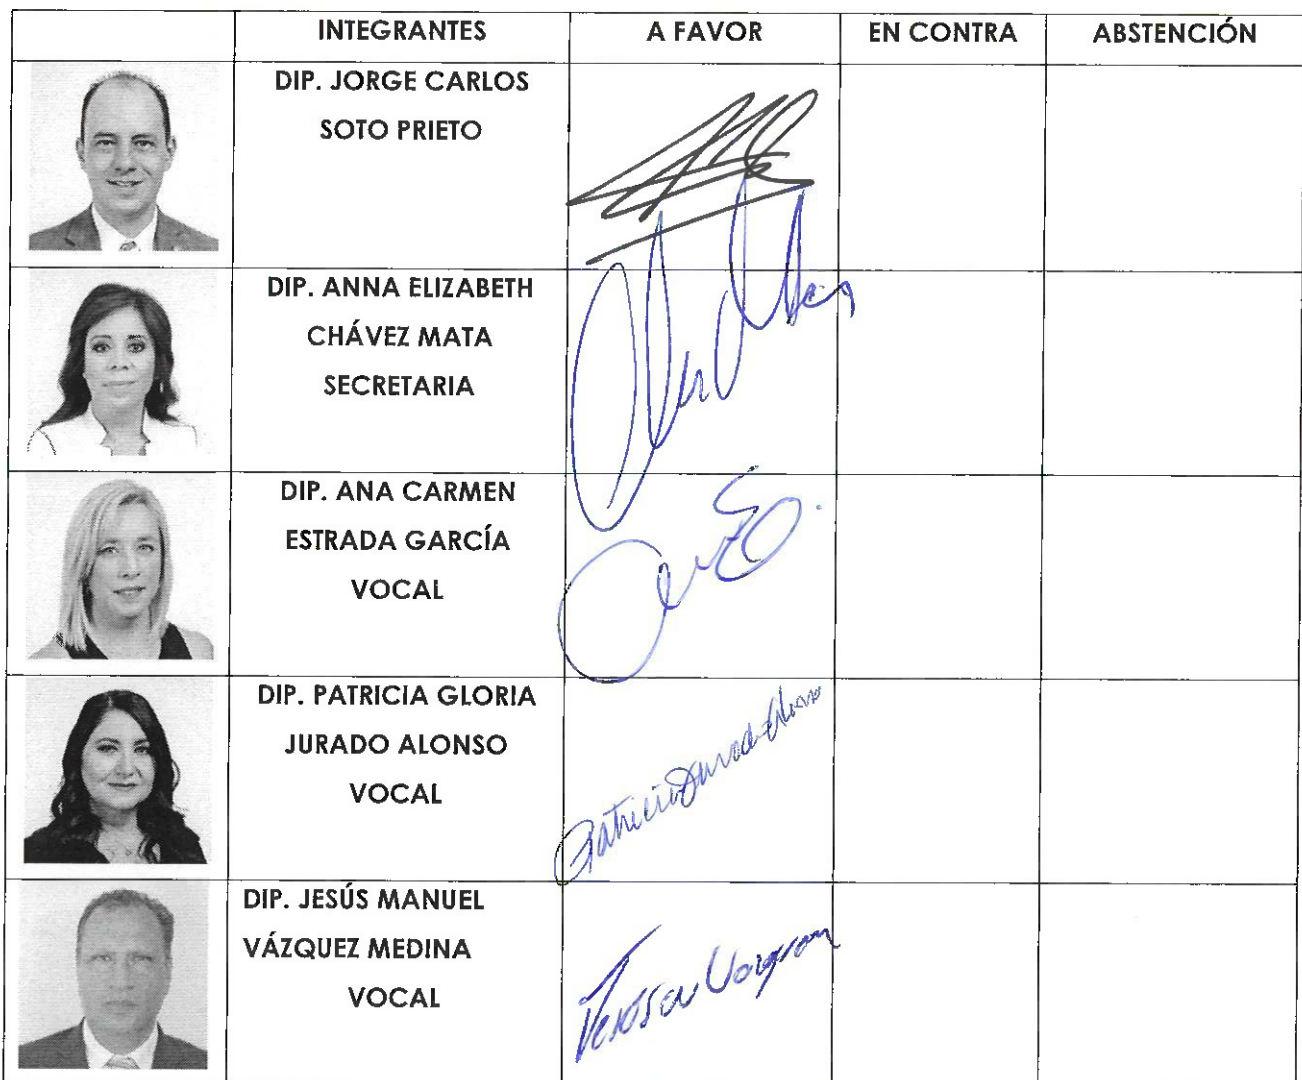 INTEGRANTES A FAVOR EN CONTRA ABSTENCIÓN
DIP. JORGE CARLOS
SOTO PRIETO
DIP. ANNA ELIZABETH
CHÁVEZ MATA
SECRETARIA
DIP. ANA CARMEN
ESTRADA GARCÍA
VOCAL
DIP. PATRICIA GLORIA
JURADO ALONSO
VOCAL
DIP. JESÚS MANUEL
VÁZQUEZ MEDINA
VOCAL